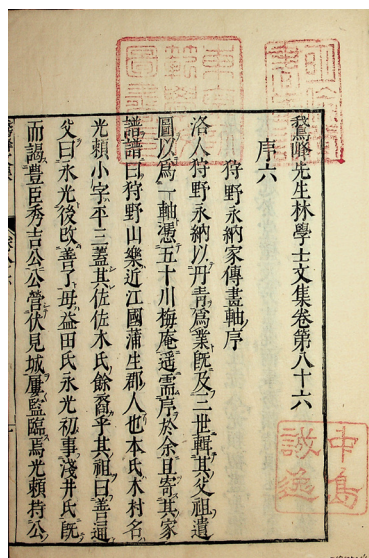 鵞峰先生林學士文集卷第八十六
序六
狩野永納家傳畫軸序
洛人狩野永納以丹青爲業既及三世輯其父祖遺
圖以爲一軸憑五十川梅庵遥需序於余且寄其家
譜譜曰狩野山樂近江國蒲生郡人也本氏木村名
光頼小字平三蓋其佐佐木氏餘裔乎其祖曰善通
父曰永光後改善了母益田氏永光初事淺井氏既
而謁豊臣秀吉公公營伏見城屢監臨焉光頼持公
中島
誠逸